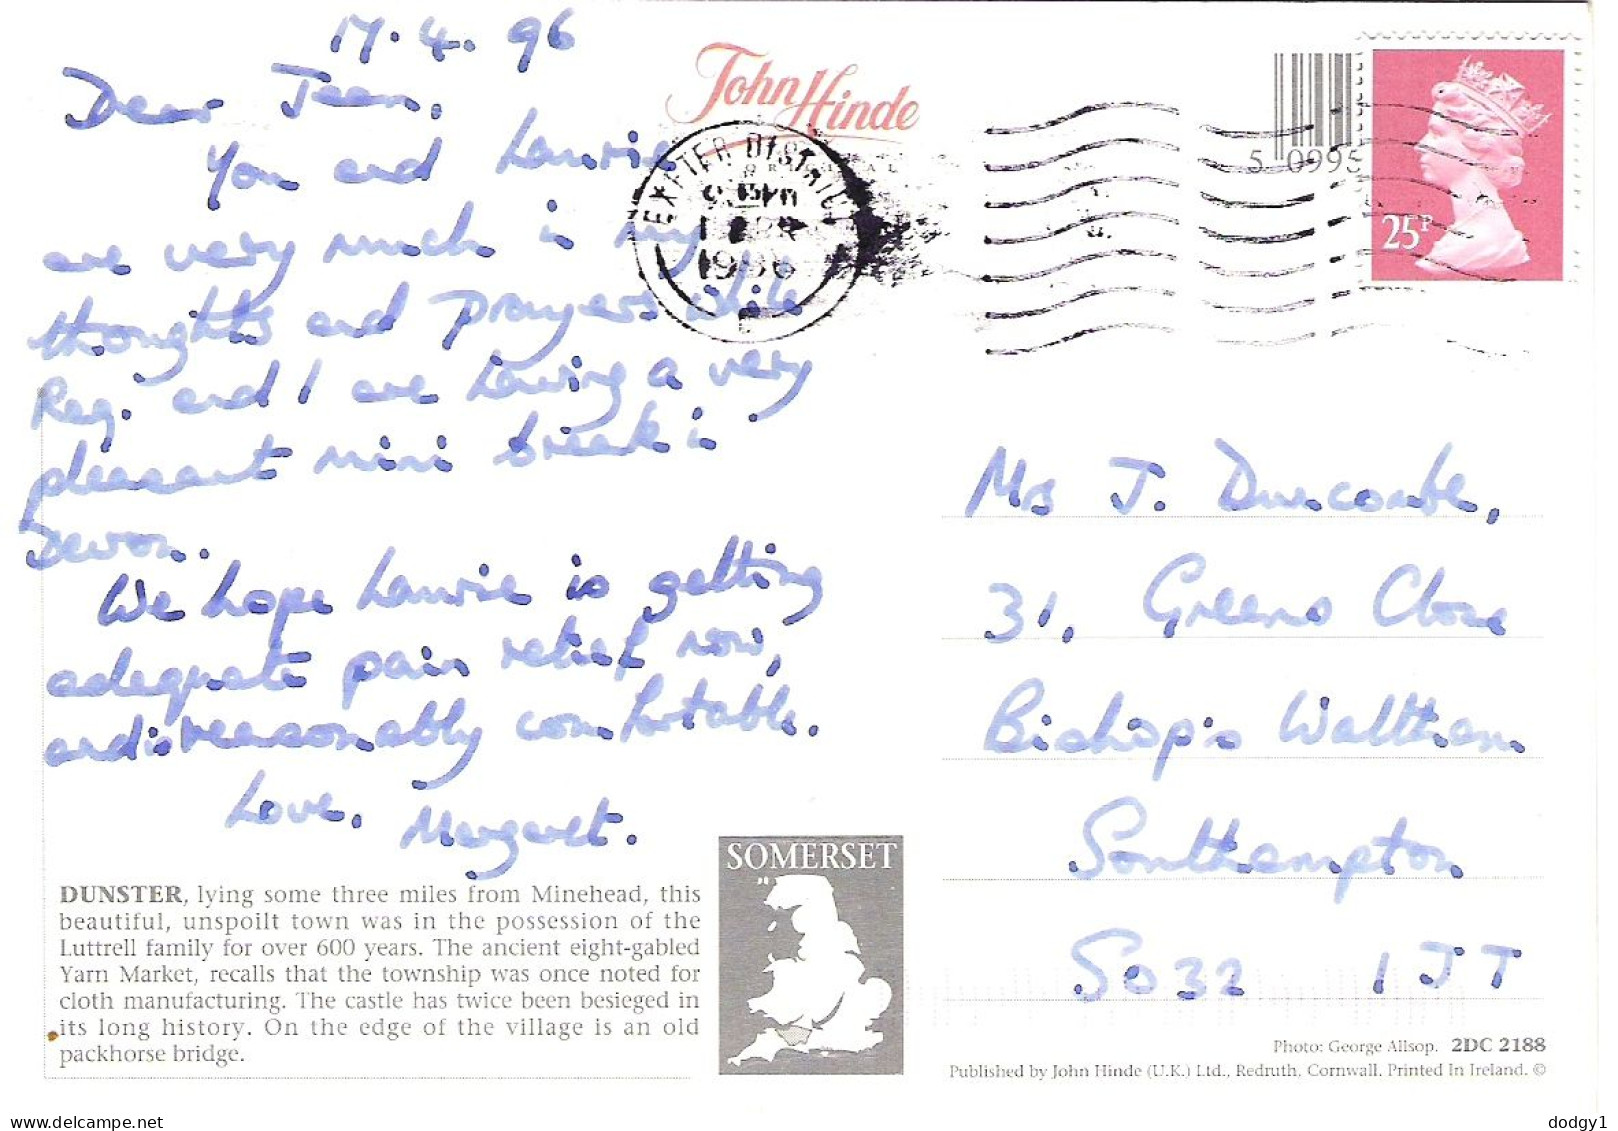 17.4.96
Dear Jean,
You and Laurie
are very much in my
thoughts and prayers while
Reg. and I are having a very
pleasant mini break in
Devon.
We hope Laurie is getting
adequate pain relief now,
and is reasonably comfortable.
Love, Margaret.
DUNSTER, lying some three miles from Minehead, this
beautiful, unspoilt town was in the possession of the
Luttrell family for over 600 years. The ancient eight-gabled
Yarn Market, recalls that the township was once noted for
cloth manufacturing. The castle has twice been besieged in
its long history. On the edge of the village is an old
packhorse bridge.
SOMERSET
John Hinde
EXETER DISTRICT
1996
5 0995
25P
Mrs J. Duncombe,
31, Greens Close
Bishop's Waltham
Southampton
SO32 1JT
Photo: George Allsop. 2DC 2188
Published by John Hinde (U.K.) Ltd., Redruth, Cornwall. Printed In Ireland. ©
www.delcampe.net
dodgy1